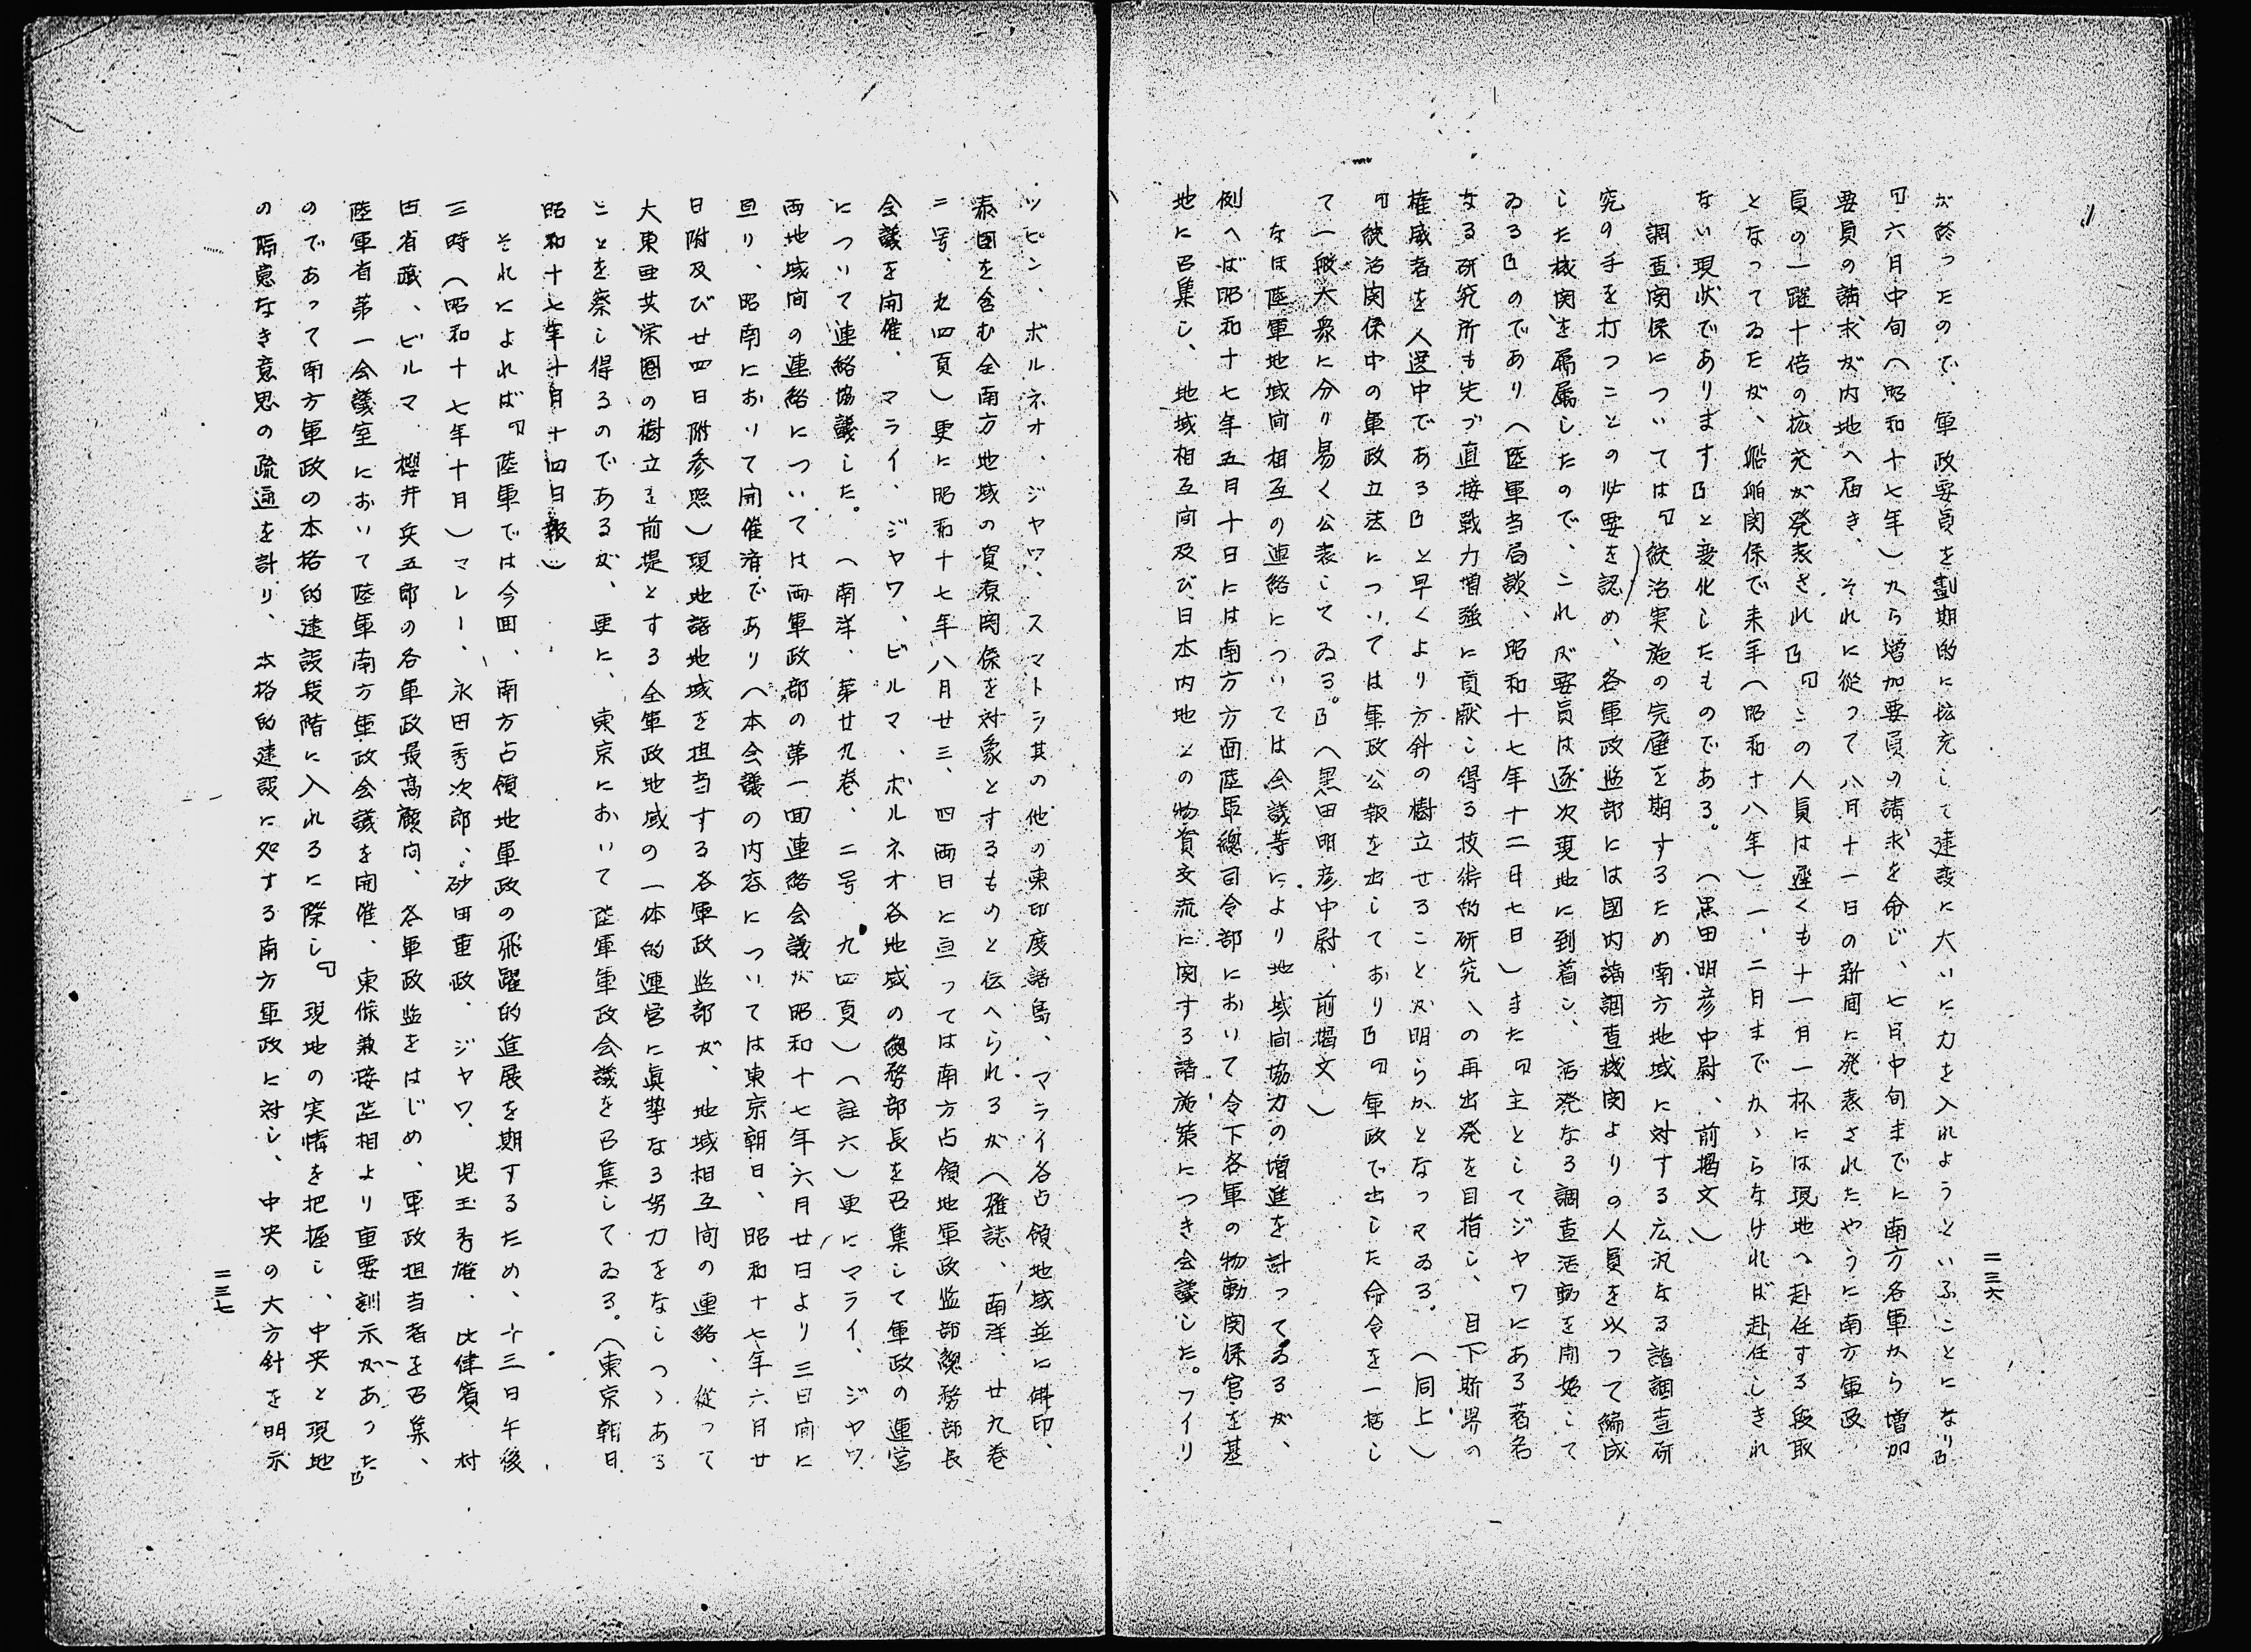 二三六
が終ったので、軍政要員を劃期的に拡充して建設に大いに力を入れようといふことになり』
『六月中旬(昭和十七年)から増加要員の請求を命じ、七月中旬までに南方各軍から増加
要員の請求が内地へ届き、それに従って八月十一日の新聞に発表されたやうに南方軍政
員の一躍十倍の拡充が発表され』『この人員は遅くも十一月一杯には現地へ赴任する段取
となってゐたが、船舶関係で来年(昭和十八年)一、二月までかゝらなければ赴任しきれ
ない現状であります』と変化したものである。(黒田明彦中尉、前掲文)
調査関係については『統治実施の完璧を期するため南方地域に対する広汎なる諸調査研
究の手を打つことの必要を認め、各軍政監部には國内諸調査機関よりの人員を以って編成
した機関を属したので、これが要員は逐次現地に到着し、活発なる調査活動を開始して
ゐる』のであり(陸軍当局談、昭和十七年十二日七日)また『主としてジヤワにある著名
なる研究所も先づ直接戦力増強に貢献し得る技術的研究への再出発を目指し、目下斯界の
権威者を人選中である』と早くより方針の樹立せることが明らかとなってゐる。(同上)
『統治関係中の軍政立法については軍政公報を出しており』『軍政で出した命令を一括し
て一般大衆に分り易く公表してゐる。』(黒田明彦中尉、前掲文)
なほ陸軍地域間相互の連絡については会議等により地域間協力の増進を計ってゐるが、
例へば昭和十七年五月十日には南方方面陸軍總司令部において令下各軍の物動関係官を基
地に召集し、地域相互間及び日本内地との物資交流に関する諸施策につき会議した。フイリ
ツピン、ボルネオ、ジヤワ、スマトラ其の他の東印度諸島、マライ各占領地域並に佛印、
泰国を含む全南方地域の資源関係を対象とするものと伝へられるが(雑誌、南洋、廿九巻
二号、九四頁)更に昭和十七年八月廿三、四両日に亘っては南方占領地軍政監部總務部長
会議を開催、マライ、ジヤワ、ビルマ、ボルネオ各地域の總務部長を召集して軍政の運営
について連絡協議した。(南洋、第廿九巻、二号、九四頁)(註六)更にマライ、ジヤワ
両地域間の連絡については両軍政部の第一回連絡会議が昭和十七年六月廿日より三日間に
亘り、昭南におりて開催済であり(本会議の内容については東京朝日、昭和十七年六月廿
日附及び廿四日附参照)現地諸地域を担当する各軍政監部が、地域相互間の連絡、従って
大東亜共栄圏の樹立を前提とする全軍政地域の一体的連営に眞摯なる努力をなしつゝある
ことを察し得るのであるが、更に、東京において陸軍軍政会議を召集してゐる。(東京朝日
昭和十七年十月十四日報)
それによれば『陸軍では今回、南方占領地軍政の飛躍的進展を期するため、十三日午後
三時(昭和十七年十月)マレー、永田秀次郎、砂田重政、ジヤワ、児玉秀雄、比律賓、村
田省蔵、ビルマ、櫻井兵五郎の各軍政最高顧問、各軍政監をはじめ、軍政担当者を召集、
陸軍省第一会議室において陸軍南方軍政会議を開催、東條兼攝陸相より重要訓示があった』
のであって南方軍政の本格的建設段階に入れるに際し『現地の実情を把握し、中央と現地
の隔意なき意思の疏通を計り、本格的建設に処する南方軍政に対し、中央の大方針を明示
二三七